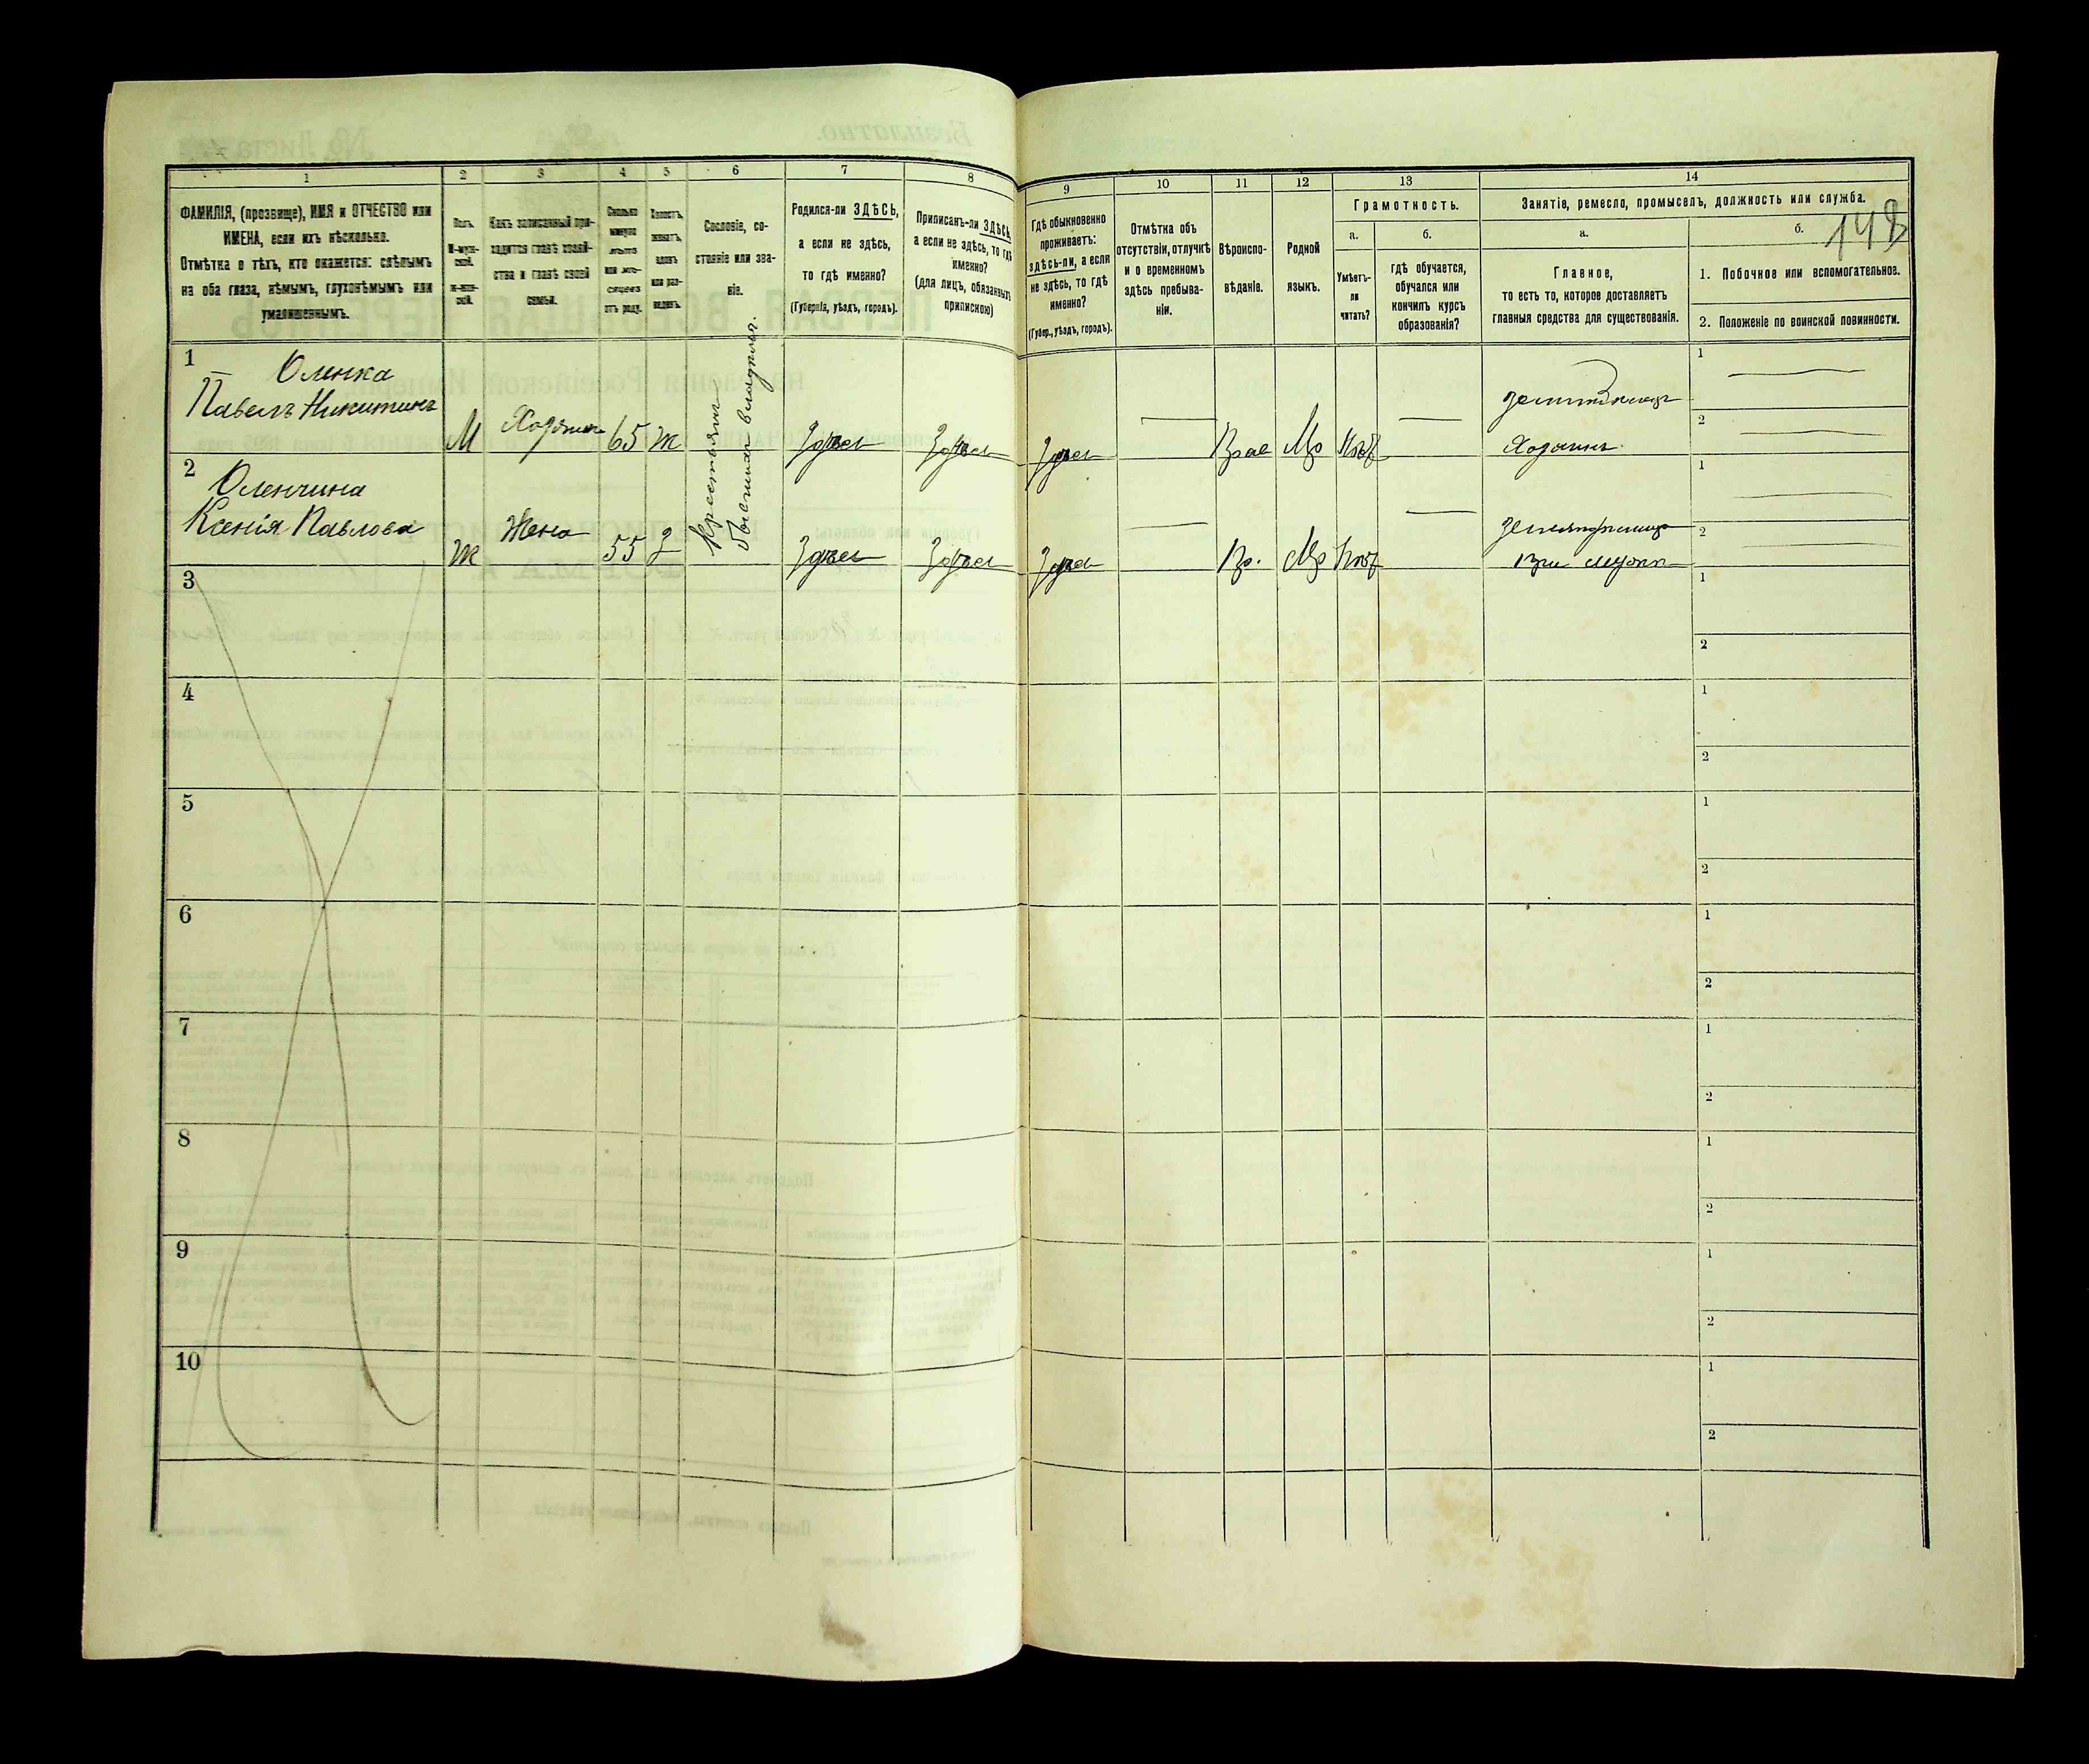 1 2 3 4 5 6 7 8 9 10 11 12 13 14
ФАМИЛІЯ, (прозвище), ИМЯ и ОТЧЕСТВО или
ИМЕНА, если ихъ нѣсколько.
Отмѣтка о тѣхъ, кто окажется: слѣпымъ
на оба глаза, нѣмымъ, глухонѣмымъ или
умалишеннымъ.
Полъ.
М-муж-
ской.
Ж-жен-
скій.
Какъ записанный при-
ходится главѣ хозяй-
ства и главѣ своей
семьи.
Сколько
минуло
лѣтъ
или мѣ-
сяцевъ
отъ роду.
Холостъ,
женатъ,
вдовъ
или раз-
веденъ.
Сословіе, со-
стояніе или зва-
ніе.
Родился-ли ЗДѢСЬ,
а если не здѣсь,
то гдѣ именно?
(Губернія, уѣздъ, городъ).
Приписанъ-ли ЗДѢСЬ,
а если не здѣсь, то гдѣ
именно?
(для лицъ, обязанныхъ
припискою)
Гдѣ обыкновенно
проживаетъ:
здѣсь-ли, а если
не здѣсь, то гдѣ
именно?
(Губер., уѣздъ, городъ).
Отмѣтка объ
отсутствіи, отлучкѣ
и о временномъ
здѣсь пребыва-
ніи.
Вѣроиспо-
вѣданіе.
Родной
языкъ.
Грамотность.
а.
Умѣетъ-
ли
читать?
б.
гдѣ обучается,
обучался или
кончилъ курсъ
образованія?
Занятіе, ремесло, промыселъ, должность или служба.
а.
Главное,
то есть то, которое доставляетъ
главныя средства для существованія.
б.
1. Побочное или вспомогательное.
2. Положеніе по воинской повинности.
1 Оленка
Павелъ Никитинъ
М Хозяинъ 65 ж Здѣсь Здѣсь Здѣсь Прав Мр Нѣт
Хозяинъ
1
2
Крестьянин
бывших владѣльч.
2 Оленчина
Ксенія Павлова
Ж Жена 55 З Здѣсь Здѣсь Здѣсь Пр. Мр Нѣт
При мужѣ
1
2
3
1
2
4
1
2
5
1
2
6
1
2
7
1
2
8
1
2
9
1
2
10
1
2